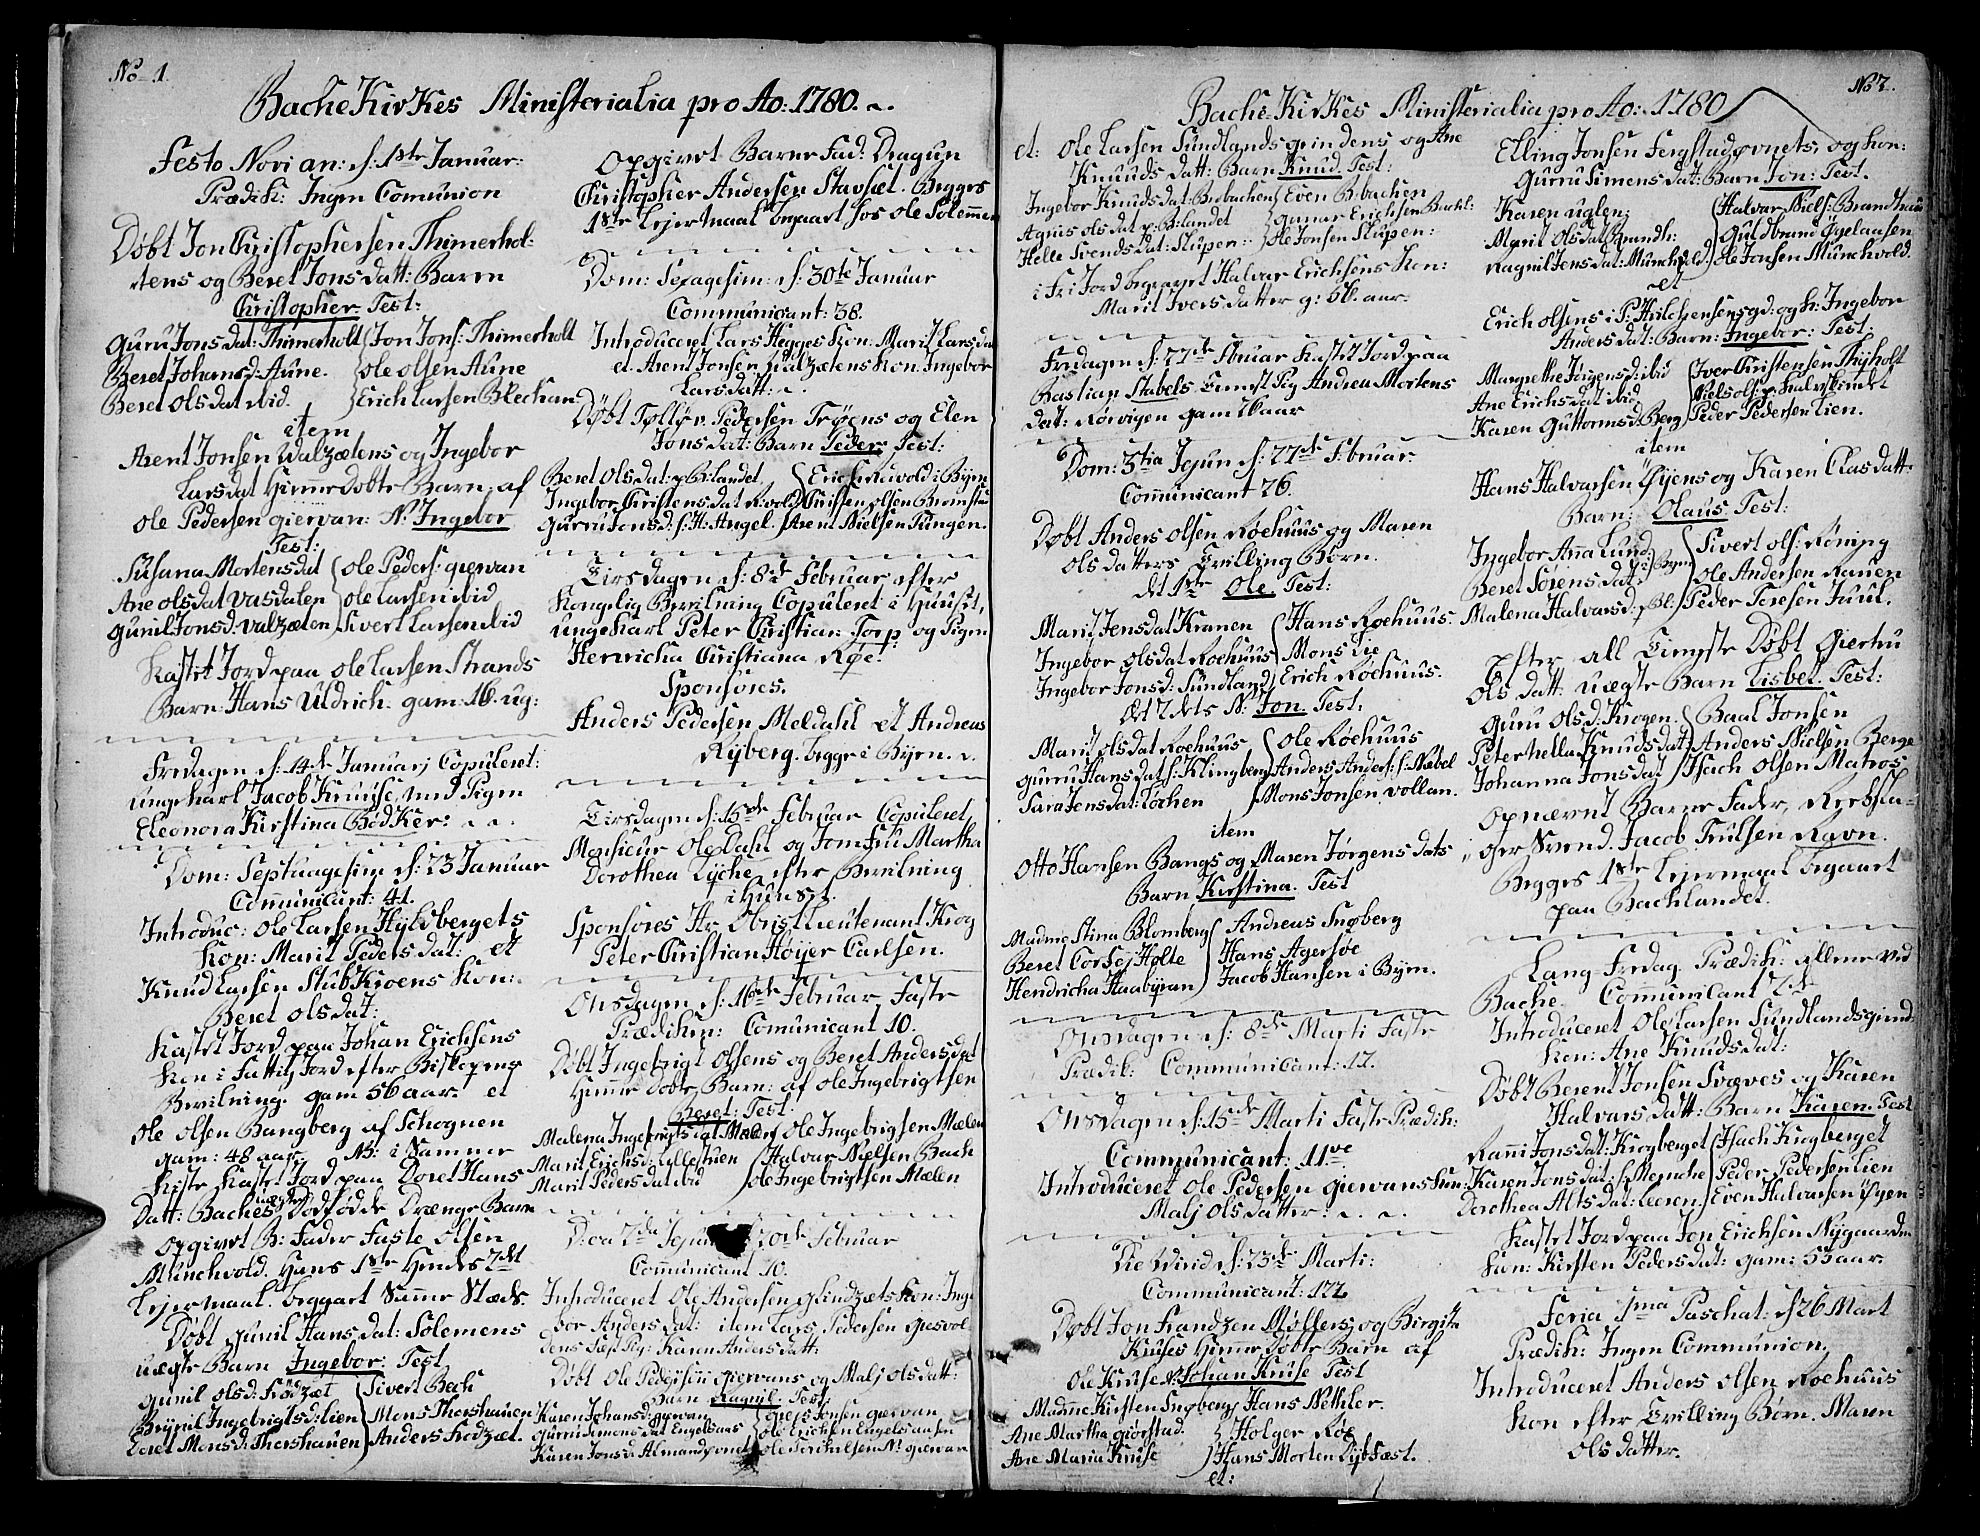 No 1.
Bache Kirkes Ministerialia pro Ao: 1780.
Festo Novi an: d: 1ste Januar:
Prædik: Ingen Comunion
Døbt Jon Christophersen Thimerhol-
tens og Beret Jons datt: Barn
Christopher. Test:
Guru Jons dat: Thimerholt Jon Jons: Thimerholt
Beret Johansd: Aune. Ole Olsen Aune
Beret Olsdat ibid. Erich Larsen Blechan
item
Arent Jonsen Walzætens og Ingebor
Larsdat Hiemme Døbte Barn af
Ole Pedersen giervan: N: Ingebor
Test:
Susana Mortensdat Ole Peders: giervan
Ane Olsdat Vasdalen Ole Larsen ibid
Gunil Jonsd: Valzæten Sivert Larsen ibid
Kastet Jord paa Ole Larsen Strands
Barn Hans Uldrich: gam: 16. ug:
Fredagen d: 14de Januarj Copuleret:
ungekarl Jacob Knuysse, med Pigen
Eleonora Kirstina Bødker.
Dom: Septuagesim d: 23 Januar
Communicant: 41.
Introduc: Ole Larsen Hyldbergets
Kon: Marit Peders dat: et
Knud Larsen Stubkroens Kon:
Beret Olsdat:
Kastet Jord paa Johan Erichsens
Kon i Fattig Jord efter Biskopens
Bevilning. gam 56 aar. et
Ole Olsen Bangberg af Schognen
gam: 48 aar. NB: i Samme
Kiste Kastet Jord paa Doret Hans
Datt: Baches uægte Dødfødde Drænge Barn
Opgivet B: Fader Faste Olsen
Munchvold. Hans 1ste Hendes 2det
Lejermaal. beggart Samme Stæds.
Døbt Gunil Hans dat: Solemens
uægte Barn Ingebor: Test
Gunil Olsd: Frødzæt Sivert Bech
Brynil Ingebrigtsd: Lien Mons Thershauen
Doret Monsd: Thershauen Anders Frodzæt.
Opgivet Barne Fad: Dragun
Christopher Andersen Stavset. Begges
1ste Lejermaal begaaet hos Ole Solemmen
Dom: Sexagesim: d: 30te Januar
Communicant: 38.
Introduceret Lars Hegges Kon: Marit Larsdat
et Arent Jonsen Walzætens Kon: Ingebor
Larsdatt:
Døbt Tolløv Pedersen Trøens og Elen
Jonsdat: Barn Peder. Test:
Beret Olsdat: p B:landet Erich Ruvold i Byen
Ingebor Christens dat Ruvold Christen Olsen Bromstad
Gurru Jonsd: S: H: Angel. Arent Nielsen Pungen.
Tirsdagen d: 8de Februar efter
Kongelig Bevilning Copuleret i Huuset,
ungekarl Peter Christian Torp og Pigen
Henricha Christiana Røe.
Sponsores.
Anders Pedersen Meldahl et Andreas
Ryberg. begge i Byen.
Tirsdagen d: 15de Februar Copuleret
Monsieur Ole Dahl og Jomfru Martha
Dorothea Lyche efter Bevilning
i Huuset.
Sponsores Hr Obristlieutenant Krog
Peter Christian Høyer Carlsen.
Onsdagen d: 16de Februar, Faste
Prædiken: Comunicant 10.
Døbt Ingebrigt Olsens og Beret Andersdat
Hiemme Døbte Barn: af Ole Ingebrigtsen
Beret: Test.
Malena Ingebrigts dat Mælen Ole Ingebrigtsen Mælen
Marit Erichsd: Lillestuen Halvar Nielsen Bach
Marit Peders dat ibid Ole Ingebrigtsen Mælen
Dom 2da Jejun d: 20de Februar
Communicant 10.
Introduceret Ole Andersen Glindzæts Kon: Inge
bor Andersdat: item Lars Pedersen Giesvol
dens Fæst Pig: Karen Andersdatt:
Døbt Ole Pedersen giervans og Malj Olsdatt:
Barn Ragnil: Test
Karen Johansd: giervan Giert Jonsen giervan
Gurru Simens dat Engelsaas Ole Erichsen Engelsaasen
Karen Jonsd: Almaas
No 2.
Bache Kirkes Ministerialia pro Ao: 1780
et: Ole Larsen Sundlands grindens og Ane
Knuds datt: Barn Knud. Test:
Ingebor Knudsdat B:bachen Even B:bachen
Agnis Olsdat p: B:landet Gunar Erichsen Backl:
Helle Svends dat: Stupen: Ole Jonsen Stupen:
i Fri Jord begravet Halvar Erichsens Kon:
Marit Ivers datter g: 56. aar.
Fredagen d: 22de Februar Kastet Jord paa
Bastian Stabels Tienest Pig Andrea Mortens
dat: Rørvigen gam aar
Dom: 3tia Jejun d: 27de Februar.
Communicant 26.
Døbt Anders Olsen Røehuus og Maren
Ols datters Tvilling Børn.
det 1ste Ole. Test:
Marit Jensdat Kranen Hans Roehuus.
Ingebor Olsdat Roehuus Mons Lie
Ingebor Jonsd: Sundland Erich Rochuus.
det 2dets N: Jon. Test.
Marit Olsdat Roehuus Ole Roehuus
Gurru Hans dat S: Klingberg Anders Anders: S: Næbel
Sara Jensdat: Løchen Mons Jonsen Vollan.
item
Otto Hansen Bangs og Maren Jørgens dats
Barn Kirstina. Test
Madme Stina Blomberg Andreas Sugberg
Beret Corssej Holte Hans Agersøe
Hendricha Haabyran Jacob Hansen i Byen.
Onsdagen d: 8de Marti Faste
Prædik: Communicant: 12.
Onsdagen d: 15de Marti Faste Prædik:
Communicant: 11ve
Introduceret Ole Pedersen giervans Kun:
Malj Olsdatter:
Die Virid d: 23de Marti:
Communicant: 122
Døbt Jon Frandzen Møllers og Birgita
Kruses Hiemme Døbte Barn af
Ole Kruse N: Johan Kruse Test
Madme Kirsten Sugberg Hans Nethler.
Ane Martha giørstad. Holger Røe
Ane Maria Kruse Hans Morten Lybsæst.
et:
Elling Jonsen Fergstadøvnets, og Kon:
Gurru Simens dat: Barn Jon: Test.
Karen Uglen: Halvar Niels: Brandtraa
Marit Olsdat Brandh: Guldbrand Øyelaasen
Ragnil Jensdat: Munchvold Ole Jonsen Munchvold.
et
Erich Olsens i P: Hilchensens gd: og Kr: Ingebor
Anders dat: Barn: Ingebor: Test:
Margrethe Jørgensd: ibid Iver Christensen Thyholt
Ane Erichsdat ibid Niels Ols: p: Kalvskindet
Karen Guttormsd: Berg Peder Pedersen Lien.
item
Hans Halvarsen Øyens og Karen Clasdatt:
Barn: Olaus Test:
Ingebor Anna Lund Sivert Ols: Røning
Beret Sørensdat: i Byen Ole Andersen Rauen
Malena Halvarsd: p: B: Peder Teresen Juul.
efter all Tieneste Døbt Giertru
Ols datt: Uægte Barn Lisbet. Test:
Guru Olsd: Krogen. Baal Jonsen
Peternella Knudsdat Anders Nielsen Berge
Johanna Jonsdat Isach Olsen Matros
Opnævnt Barne Fader, Rebsla-
ger Svend. Jacob Trulsen Ravn.
Begges 1ste Lejermaal begaaet
paa Bachlandet.
Lang Fredag. Prædik: allene ved
Bache. Communicant 7de
Introduceret Ole Larsen Sundlandsgrind:
Kon: Ane Knudsdat:
Døbt Berent Jonsen Svæves og Karen
Halvars datt: Barn Karen. Test
Ranni Jonsdat: Krogberget Isach Kugberget
Karen Jonsdat: S: Menche Peder Pedersen Lien
Dorothea Alts dat: Leeren. Even Halvarsen Øyen
Kastet Jord paa Jon Erichsen Nygaardens
Kun: Kirsten Peders dat: gam: 55 aar.
Feria 1ma Paschat: d 26 Mart
Prædik: Ingen Communion.
Introduceret Anders Olsen Roehuus
Kon efter Tvilling Børn. Maren
Olsdatter.